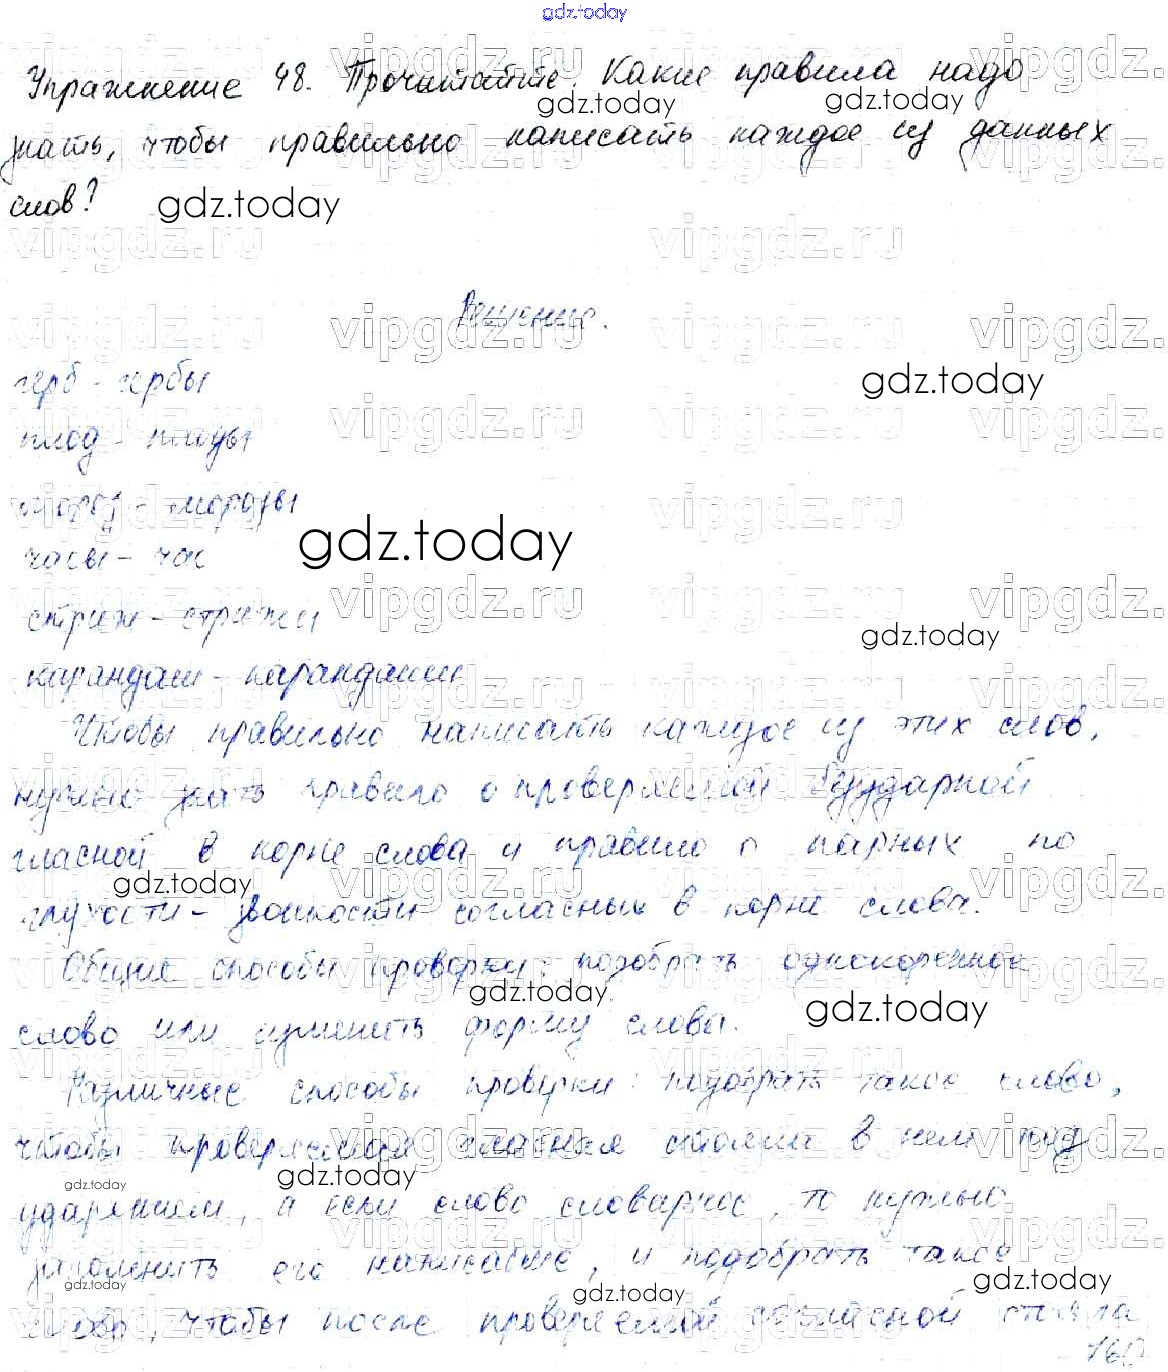 gdz.today
Упражнение 48. Прочитайте. Какие правила надо
знать, чтобы правильно написать каждое из данных
слов?
Решение.
герб - гербы
плод - плоды
мороз - морозы
часы - час
стриж - стрижи
карандаш - карандаши
Чтобы правильно написать каждое из этих слов,
нужно знать правило о проверяемой безударной
гласной в корне слова и правило о парных по
глухости - звонкости согласных в корне слова.
Общие способы проверки: подобрать однокоренное
слово или изменить форму слова.
Различные способы проверки: подобрать такое слово,
чтобы проверяемая гласная стояла в нем под
ударением, а если слово словарное, то нужно
запомнить его написание, и подобрать такое
слово, чтобы после проверяемой согласной стояла